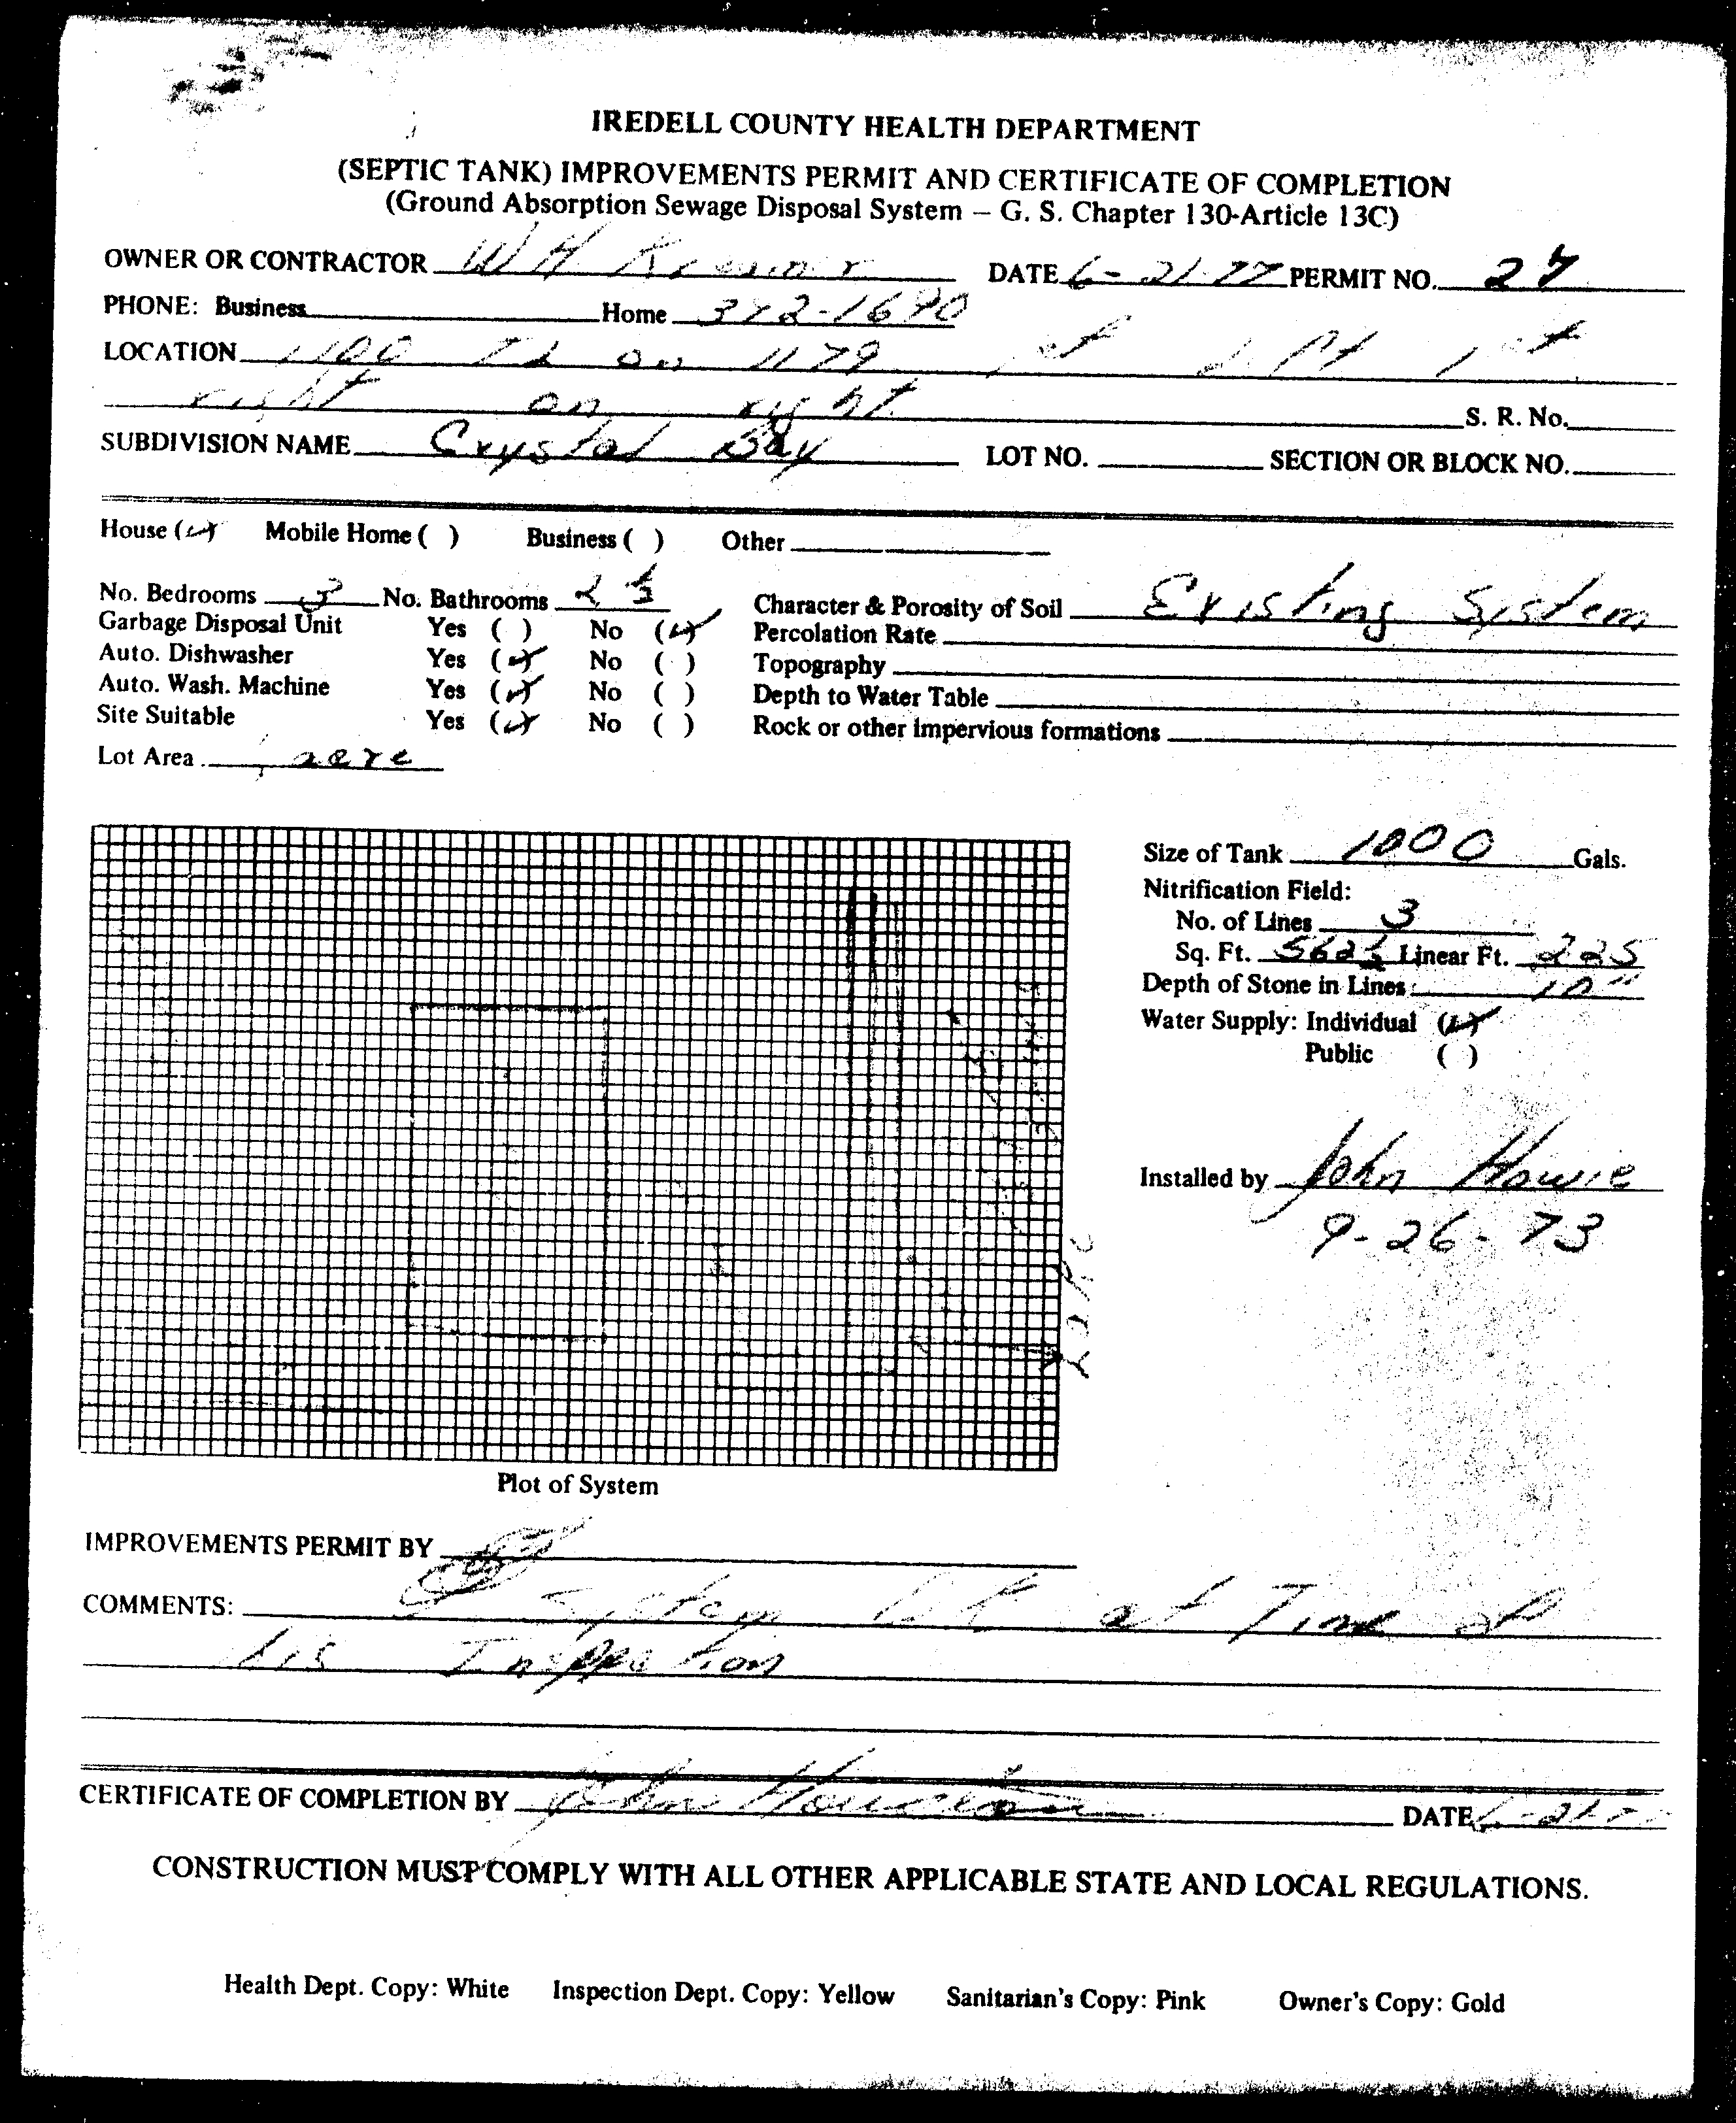 IREDELL COUNTY HEALTH DEPARTMENT
(SEPTIC TANK) IMPROVEMENTS PERMIT AND CERTIFICATE OF COMPLETION
(Ground Absorption Sewage Disposal System – G. S. Chapter 130-Article 13C)
OWNER OR CONTRACTOR W H DATE 6-21-77 PERMIT NO. 27
PHONE: Business Home 372-1690
LOCATION 1100 on 1179 1st
right on right S. R. No.
SUBDIVISION NAME Crystal Bay LOT NO. SECTION OR BLOCK NO.
House (✓) Mobile Home ( ) Business ( ) Other
No. Bedrooms 3 No. Bathrooms 2 ½ Character & Porosity of Soil Existing System
Garbage Disposal Unit Yes ( ) No (✓) Percolation Rate
Auto. Dishwasher Yes (✓) No ( ) Topography
Auto. Wash. Machine Yes (✓) No ( ) Depth to Water Table
Site Suitable Yes (✓) No ( ) Rock or other impervious formations
Lot Area acre
Size of Tank 1000 Gals.
Nitrification Field:
No. of Lines 3
Sq. Ft. 562½ Linear Ft. 225
Depth of Stone in Lines: 10"
Water Supply: Individual (✓)
Public ( )
Installed by John Howie
9-26-73
Plot of System
IMPROVEMENTS PERMIT BY
COMMENTS: System at Time of
his Inspection
CERTIFICATE OF COMPLETION BY John DATE 6-21-7
CONSTRUCTION MUST COMPLY WITH ALL OTHER APPLICABLE STATE AND LOCAL REGULATIONS.
Health Dept. Copy: White Inspection Dept. Copy: Yellow Sanitarian's Copy: Pink Owner's Copy: Gold